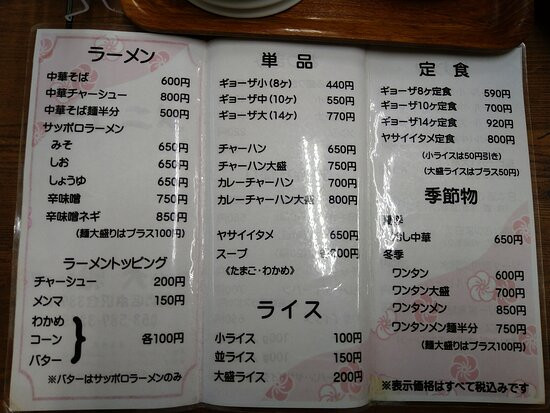 ラーメン
中華そば 600円
中華チャーシュー 800円
中華そば麺半分 500円
サッポロラーメン
みそ 650円
しお 650円
しょうゆ 650円
辛味噌 750円
辛味噌ネギ 850円
(麺大盛りはプラス100円)
ラーメントッピング
チャーシュー 200円
メンマ 150円
わかめ
コーン 各100円
バター
※バターはサッポロラーメンのみ
単品
ギョーザ小(8ヶ) 440円
ギョーザ中(10ヶ) 550円
ギョーザ大(14ヶ) 770円
チャーハン 650円
チャーハン大盛 750円
カレーチャーハン 700円
カレーチャーハン大盛 800円
ヤサイイタメ 650円
スープ 各 00円
《たまご・わかめ》
ライス
小ライス 100円
並ライス 150円
大盛ライス 200円
定食
ギョーザ8ヶ定食 590円
ギョーザ10ヶ定食 700円
ギョーザ14ヶ定食 920円
ヤサイイタメ定食 800円
(小ライスは50円引き)
(大盛ライスはプラス50円)
季節物
し中華 650円
冬季
ワンタン 600円
ワンタン大盛 700円
ワンタンメン 850円
ワンタンメン麺半分 750円
(麺大盛りはプラス100円)
※表示価格はすべて税込みです